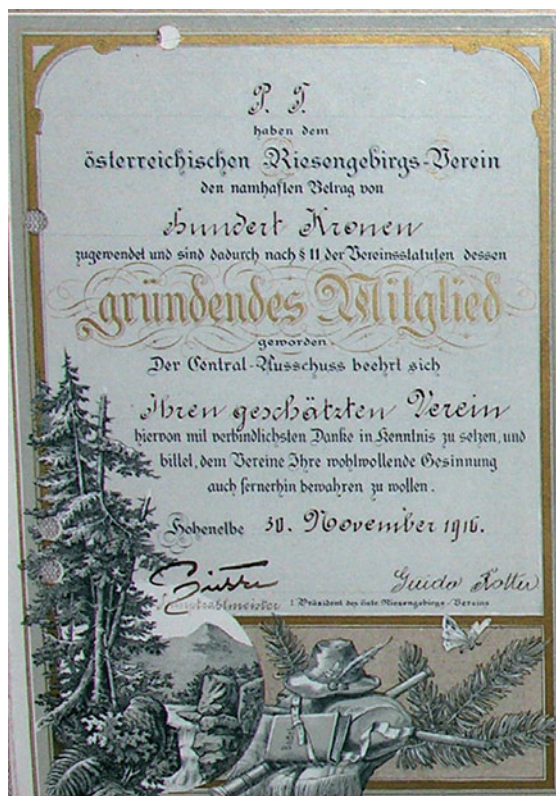 P. T.
haben dem
österreichischen Riesengebirgs-Verein
den namhaften Betrag von
hundert Kronen
zugewendet und sind dadurch nach § 11 der Vereinsstatuten dessen
gründendes Mitglied
geworden.
Der Central-Ausschuss beehrt sich
Ihren geschätzten Verein
hiervon mit verbindlichsten Danke in Kenntnis zu setzen, und
bittet, dem Vereine Ihre wohlwollende Gesinnung
auch fernerhin bewahren zu wollen.
Hohenelbe 30. November 1916.
Guido Rotter
Präsident des öste Riesengebirgs-Vereins